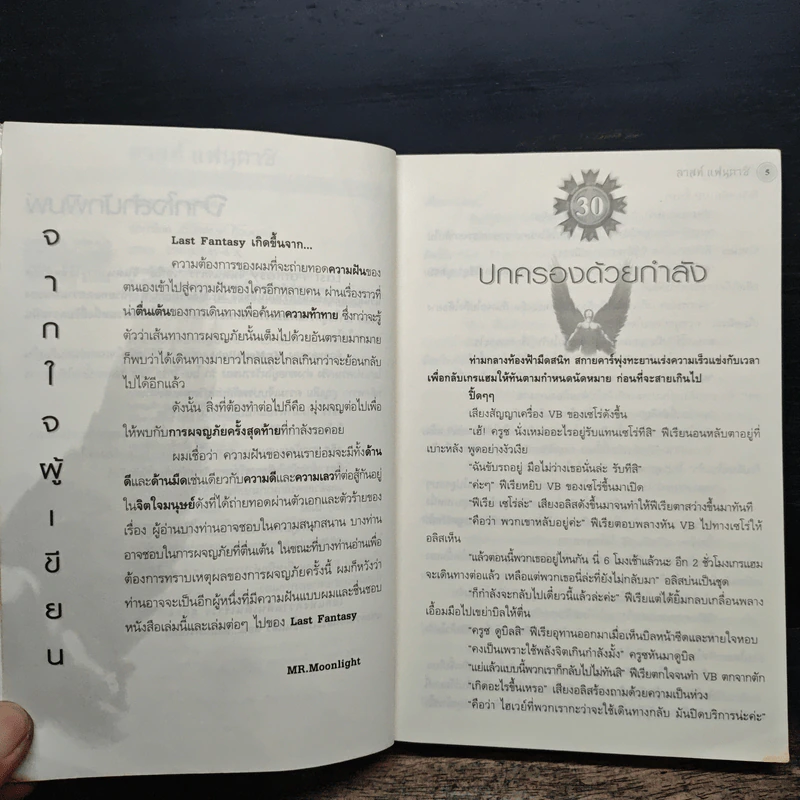 จากใจผู้เขียน
Last Fantasy เกิดขึ้นจาก...
ความต้องการของผมที่จะถ่ายทอดความฝันของ
ตนเองเข้าไปสู่ความฝันของใครอีกหลายคน ผ่านเรื่องราวที่
น่าตื่นเต้นของการเดินทางเพื่อค้นหาความท้าทาย ซึ่งกว่าจะรู้
ตัวว่าเส้นทางการผจญภัยนั้นเต็มไปด้วยอันตรายมากมาย
ก็พบว่าได้เดินทางมายาวไกลและไกลเกินกว่าจะย้อนกลับ
ไปได้อีกแล้ว
ดังนั้น สิ่งที่ต้องทำต่อไปก็คือ มุ่งผจญต่อไปเพื่อ
ให้พบกับการผจญภัยครั้งสุดท้ายที่กำลังรอคอย
ผมเชื่อว่า ความฝันของคนเราย่อมจะมีทั้งด้าน
ดีและด้านมืดเช่นเดียวกับความดีและความเลวที่ต่อสู้กันอยู่
ในจิตใจมนุษย์ดังที่ได้ถ่ายทอดผ่านตัวเอกและตัวร้ายของ
เรื่อง ผู้อ่านบางท่านอาจชอบในความสนุกสนาน บางท่าน
อาจชอบในการผจญภัยที่ตื่นเต้น ในขณะที่บางท่านอ่านเพื่อ
ต้องการทราบเหตุผลของการผจญภัยครั้งนี้ ผมก็หวังว่า
ท่านอาจจะเป็นอีกผู้หนึ่งที่มีความฝันแบบผมและชื่นชอบ
หนังสือเล่มนี้และเล่มต่อๆ ไปของ Last Fantasy
MR.Moonlight
5
30
ปกครองด้วยกำลัง
ท่ามกลางท้องฟ้ามืดสนิท สกายคาร์พุ่งทะยานเร่งความเร็วแข่งกับเวลา
เพื่อกลับเกรแฮมให้ทันตามกำหนดนัดหมาย ก่อนที่จะสายเกินไป
ปี๊ดๆๆ
เสียงสัญญาเครื่อง VB ของเซโร่ดังขึ้น
"เฮ้! ครูซ นั่งเหม่ออะไรอยู่รับแทนเซโร่ทีสิ" ฟีเรียนอนหลับตาอยู่ที่
เบาะหลัง พูดอย่างงัวเงีย
"ฉันขับรถอยู่ มือไม่ว่างเธอนั่นล่ะ รับทีสิ"
"ค่ะๆ" ฟีเรียหยิบ VB ของเซโร่มาเปิด
"ฟีเรีย เซโร่ล่ะ" เสียงอลิสดังขึ้นมาจนทำให้ฟีเรียตาสว่างขึ้นมาทันที
"คือว่า พวกเขาหลับอยู่ค่ะ" ฟีเรียตอบพลางหัน VB ไปทางเซโร่ให้
อลิสเห็น
"แล้วตอนนี้พวกเธออยู่ไหนกัน นี่ 6 โมงเช้าแล้วนะ อีก 2 ชั่วโมงเกรแฮม
จะเดินทางต่อแล้ว เหลือแต่พวกเธอนี่ล่ะที่ยังไม่กลับมา" อลิสบ่นเป็นชุด
"ก็กำลังจะกลับไปเดี๋ยวนี้แล้วล่ะค่ะ" ฟีเรียแต่ได้ยิ้มกลบเกลื่อนพลาง
เอื้อมมือไปเขย่าบิลให้ตื่น
"ครูซ ดูบิลสิ" ฟีเรียอุทานออกมาเมื่อเห็นบิลหน้าซีดและหายใจหอบ
"คงเป็นเพราะใช้พลังจิตเกินกำลังมั้ง" ครูซหันมาดูบิล
"แย่แล้วแบบนี้พวกเราก็กลับไปไม่ทันสิ" ฟีเรียตกใจจนทำ VB ตกจากตัก
"เกิดอะไรขึ้นเหรอ" เสียงอลิสร้องถามด้วยความเป็นห่วง
"คือว่า ไฮเวย์ที่พวกเรากะว่าจะใช้เดินทางกลับ มันปิดบริการน่ะค่ะ"